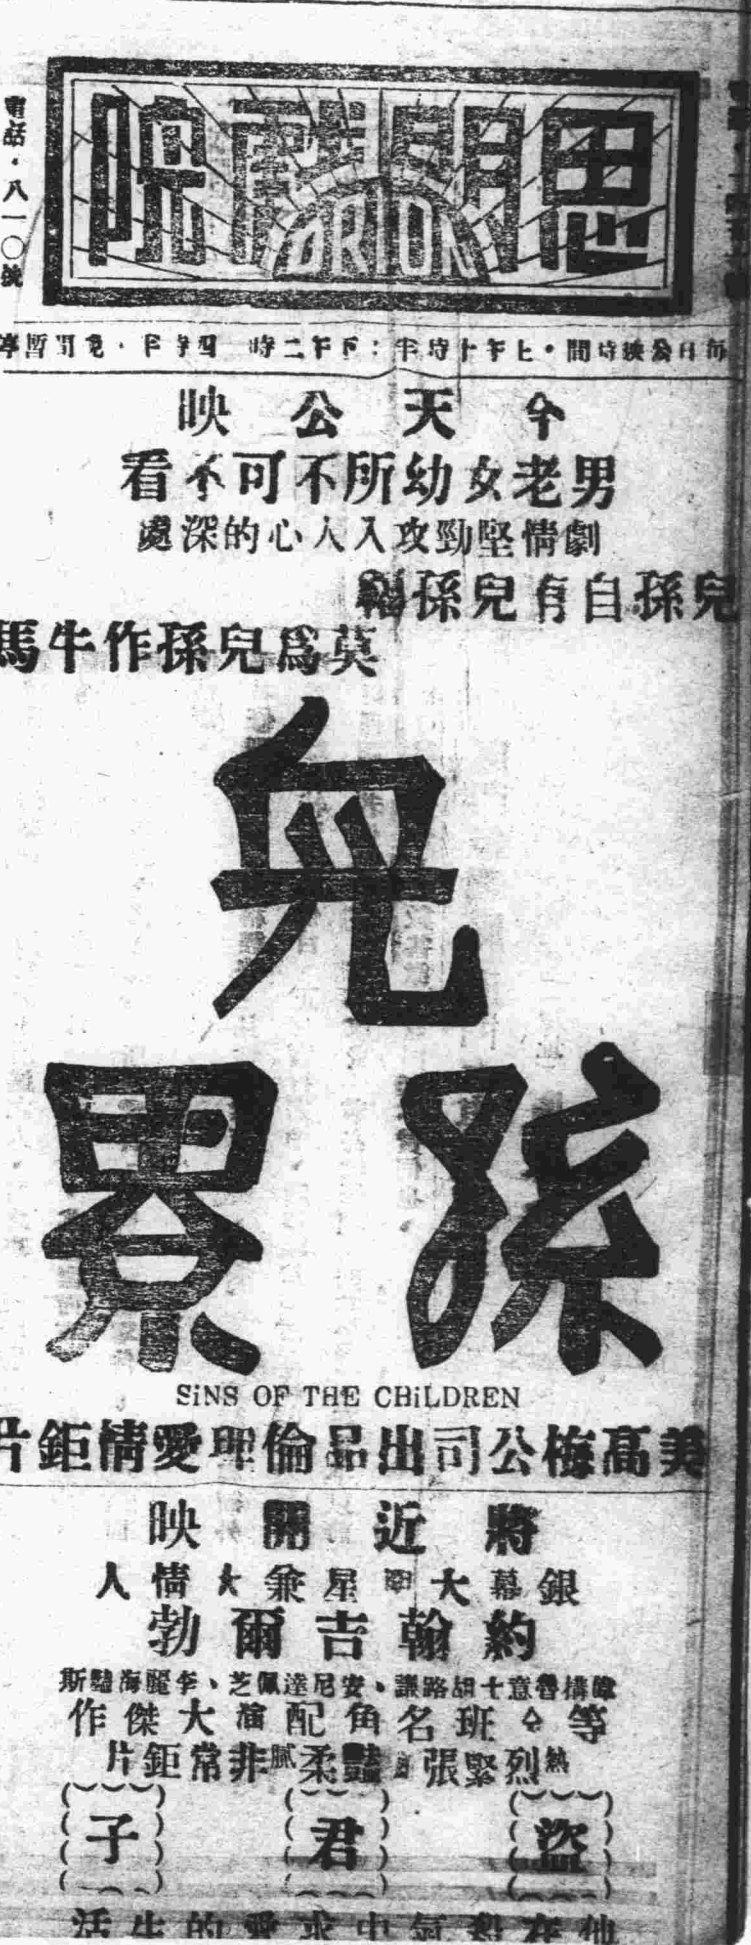 思明戲院
ORION
電話・八一〇號
每日公映時間・上午十時半：下午二時 四時半・夜間暫停
今天公映
男老女幼所不可不看
劇情堅勁攻入人心的深處
兒孫自有兒孫福
莫爲兒孫作牛馬
兒孫累
SiNS OF THE CHiLDREN
美高梅公司出品倫理愛情鉅片
將近開映
銀幕大明星兼大情人
約翰吉爾勃
安尼達佩芝、李麗海豔斯
等全班名角配演大傑作
熱烈緊張豔柔膩非常鉅片
盜君子
他在 氣中求愛的生活